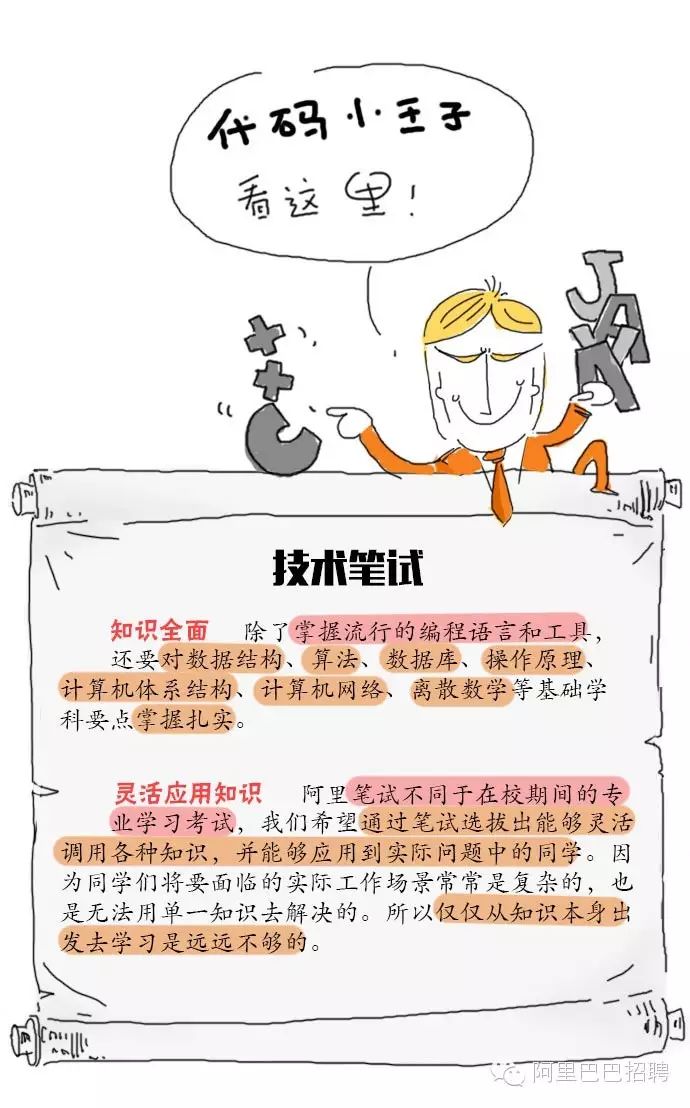 代码小王子
看这里！
JAVA
C++
技术笔试
知识全面 除了掌握流行的编程语言和工具，
还要对数据结构、算法、数据库、操作原理、
计算机体系结构、计算机网络、离散数学等基础学
科要点掌握扎实。
灵活应用知识 阿里笔试不同于在校期间的专
业学习考试，我们希望通过笔试选拔出能够灵活
调用各种知识，并能够应用到实际问题中的同学。因
为同学们将要面临的实际工作场景常常是复杂的，也
是无法用单一知识去解决的。所以仅仅从知识本身出
发去学习是远远不够的。
阿里巴巴招聘